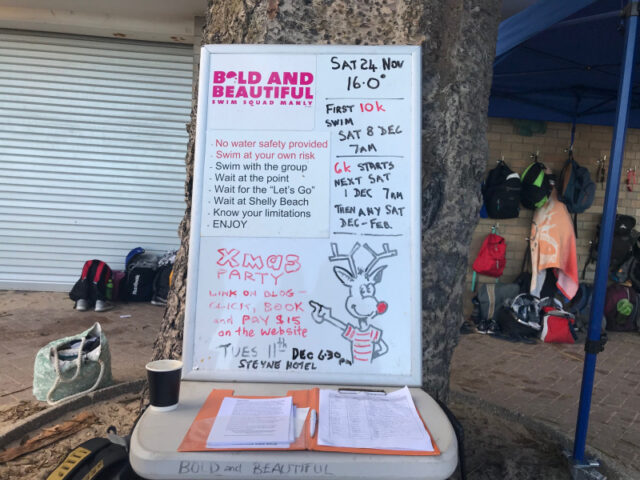 BOLD AND
BEAUTIFUL
SWIM SQUAD MANLY
- No water safety provided
- Swim at your own risk
- Swim with the group
- Wait at the point
- Wait for the "Let's Go"
- Wait at Shelly Beach
- Know your limitations
- ENJOY
SAT 24 NOV
16.0°
FIRST 10K
SWIM
SAT 8 DEC
7AM
6K STARTS
NEXT SAT
1 DEC 7AM
THEN ANY SAT
DEC - FEB.
Xmas
PARTY
LINK ON BLOG -
CLICK, BOOK
and PAY $15
on the website
TUES 11th DEC 6.30pm
STEYNE HOTEL
BOLD and BEAUTIFUL